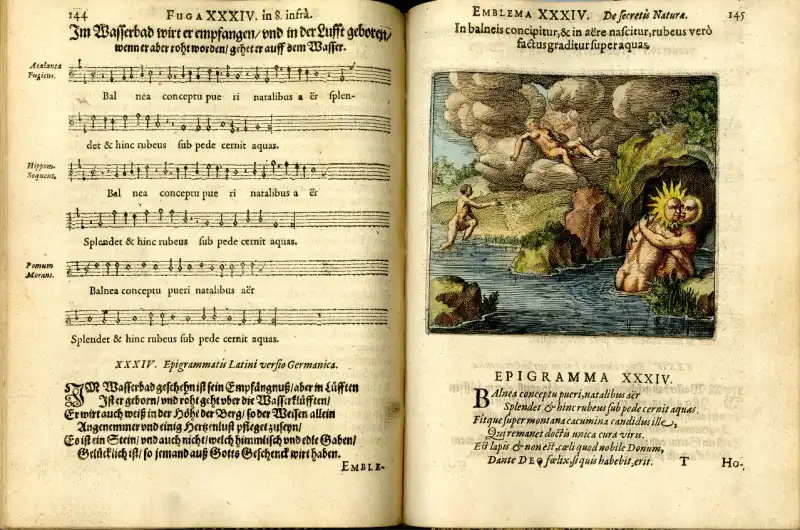 144 FUGA XXXIV. in 8. infrà.
Im Wasserbad wirt er empfangen/ vnd in der Lufft geboren/
wenn er aber roht worden/ gehet er auff dem Wasser.
Atalanta
Fugiens.
Bal nea conceptu pue ri natalibus a ër splen-
det & hinc rubeus sub pede cernit aquas.
Hippom.
Sequens.
Bal nea conceptu pue ri natalibus a ër
Splendet & hinc rubeus sub pede cernit aquas.
Pomum
Morans.
Balnea conceptu pueri natalibus aër
Splendet & hinc rubeus sub pede cernit aquas.
XXXIV. Epigrammatis Latini versio Germanica.
IM Wasserbad geschehn ist sein Empfängnuß/ aber in Lüfften
Ist er geborn/ vnd roht geht vber die Wasserklüfften/
Er wirt auch weiß in der Höhe der Berg/ so der Weisen allein
Angenemmer vnd einig Hertzenlust pfleget zuseyn/
Es ist ein Stein/ vnd auch nicht/ welch himmlisch vnd edle Gaben/
Gelücklich ist/ so jemand auß Gotts Geschenck wirt haben.
EMBLE-
EMBLEMA XXXIV. De secretis Naturæ. 145
In balneis concipitur, & in aëre nascitur, rubeus verò
factus graditur super aquas.
EPIGRAMMA XXXIV.
BAlnea conceptu pueri, natalibus aër
Splendet & hinc rubeus sub pede cernit aquas.
Fitque super montana cacumina candidus ille,
Qui remanet doctis unica cura viris.
Est lapis & non est, cœli quod nobile Donum,
Dante DEO fœlix, si quis habebit, erit.
T Ho-